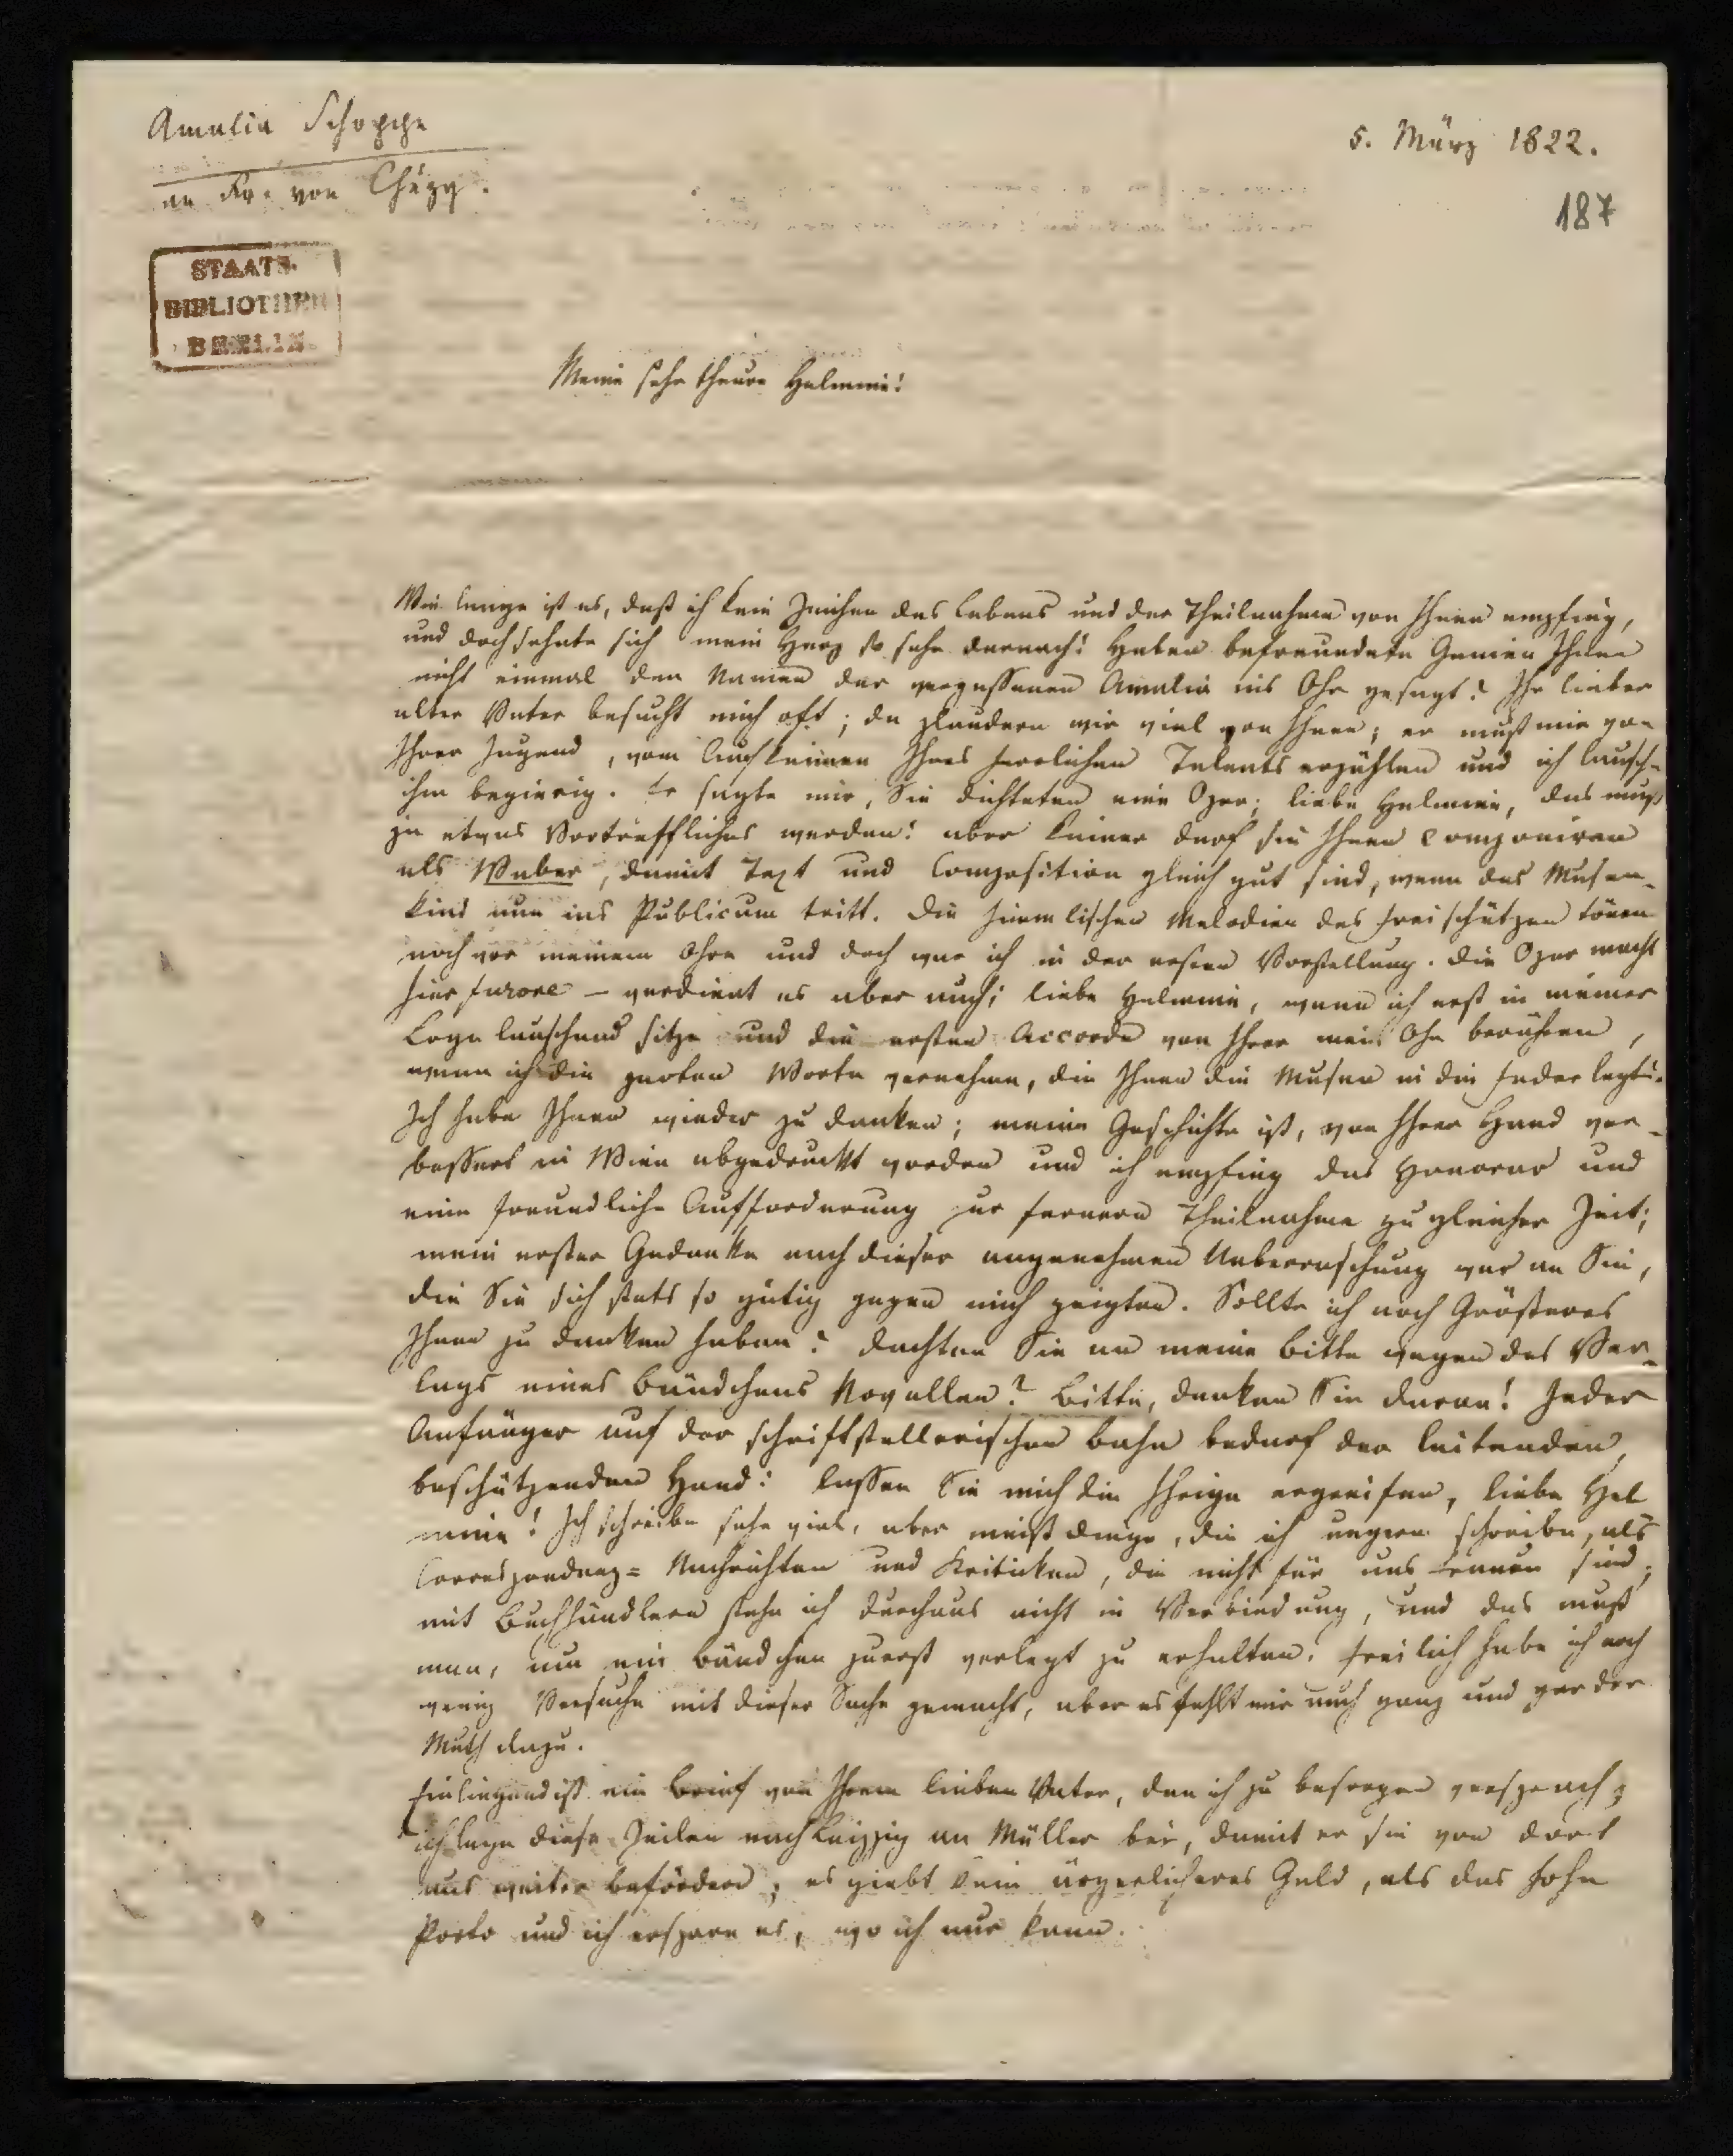 Amalia Schoppe
an Fr. von Chézy.
5. März 1822.
187
STAATS-
BIBLIOTHEK
BERLIN
Meine sehr theure Helmine!
Wie lange ist es, daß ich kein Zeichen des Lebens und der Theilnahme von Ihnen empfing,
und doch sehnte sich mein Herz so sehr darnach! Haben befreundete Genien Ihnen
nicht einmal den Namen der vergessenen Amalia ins Ohr gesagt? Ihr lieber
alter Vater besucht mich oft; da plaudern wir viel von Ihnen; er muß mir von
Ihrer Jugend, vom Aufkeimen Ihres herrlichen Talents erzählen und ich lausch-
ihm begierig. Er sagte mir, Sie dichteten eine Oper; liebe Helmine, das muß
ja etwas Vortreffliches werden! aber keiner darf sie Ihnen componiren
als Weber, damit Text und Composition gleich gut sind, wenn das Musen-
kind nun ins Publicum tritt. Die himmlischen Melodien des Freischützen tönen
noch vor meinem Ohre und doch war ich in der ersten Vorstellung. Die Oper macht
hier furore – verdient es aber auch; liebe Helmine, wenn ich erst in meiner
Loge lauschend sitze und die ersten Accorde von Ihrer mein Ohr berühren,
wenn ich die zarten Worte vernehme, die Ihnen die Musen in die Feder legte.
Ich habe Ihnen wieder zu danken; meine Geschichte ist, von Ihrer Hand ver-
bessert in Wien abgedruckt worden und ich empfing das Honorar und
eine freundliche Aufforderung zur fernern Theilnahme zu gleicher Zeit;
mein erster Gedanke nach dieser angenehmen Ueberraschung war an Sie,
die Sie sich stets so gütig gegen mich zeigten. Sollte ich noch Größeres
Ihnen zu danken haben? Dachten Sie an meine Bitte wegen des Ver-
lags eines Bändchens Novellen? Bitte, denken Sie daran! Jeder
Anfänger auf der schriftstellerischen Bahn bedarf der leitenden,
beschützenden Hand: lassen Sie mich die Ihrige ergreifen, liebe Hel
mine! Ich schreibe sehr viel, aber meist Dinge, die ich ungern schreibe, als
Correspondenz= Nachrichten und Kritiken, die nicht für uns Frauen sind;
mit Buchhändlern stehe ich durchaus nicht in Verbindung, und das muß
man, um ein Bändchen zuerst verlegt zu erhalten. Freilich habe ich noch
wenig Versuche mit dieser Sache gemacht, aber es fehlt mir auch ganz und gar der
Muth dazu.
Einliegend ist ein Brief von Ihrem lieben Vater, den ich zu besorgen versprach;
ich lege diese Zeilen nach Leipzig an Müller bei, damit er sie von dort
aus weiter befördere; es giebt kein ärgerlicheres Geld, als das hohe
Porto und ich erspare es, wo ich nur kann.